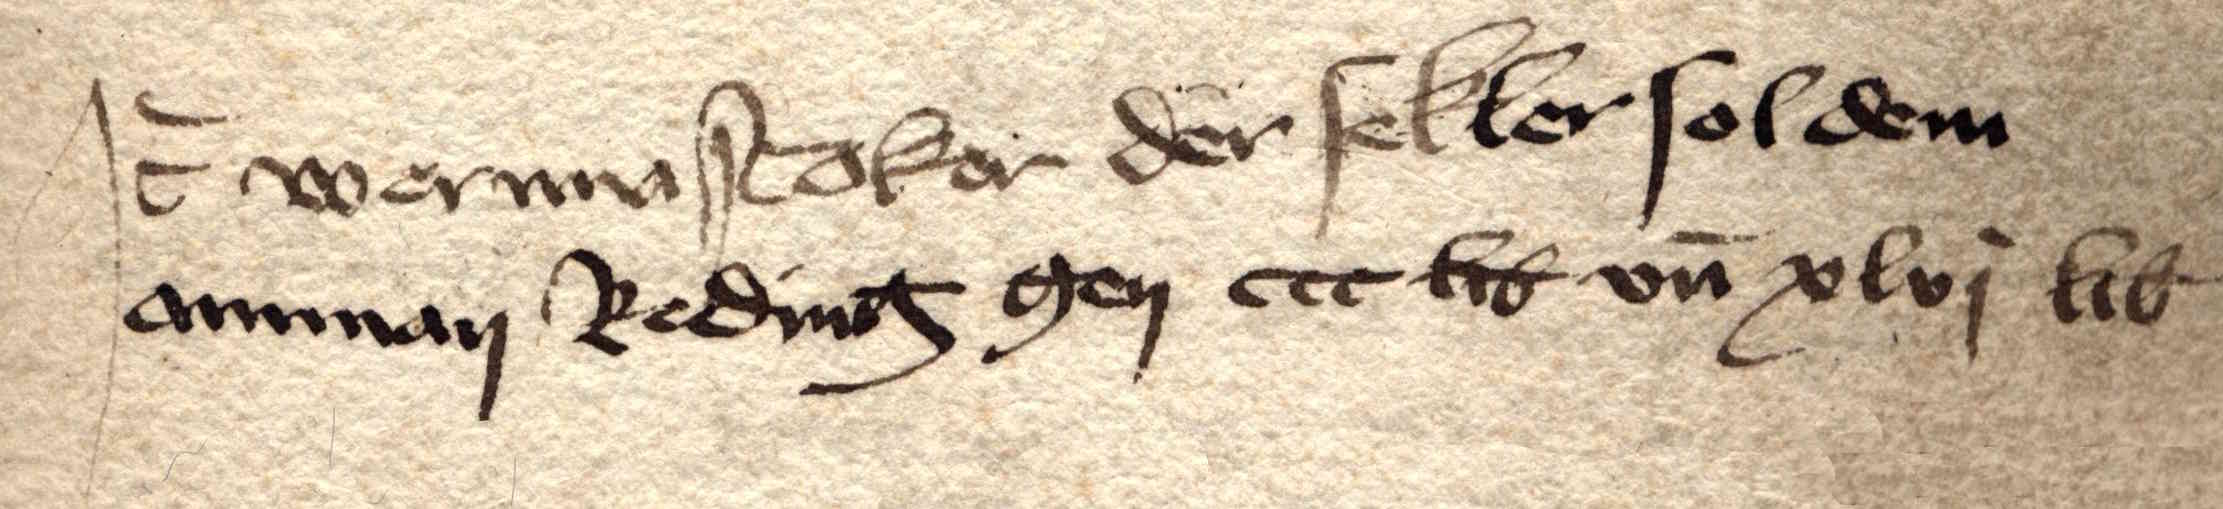 It̄ wernna Stoker der sekler sol dem
amman Reding gen ccc lib vn̄ xlvj lib